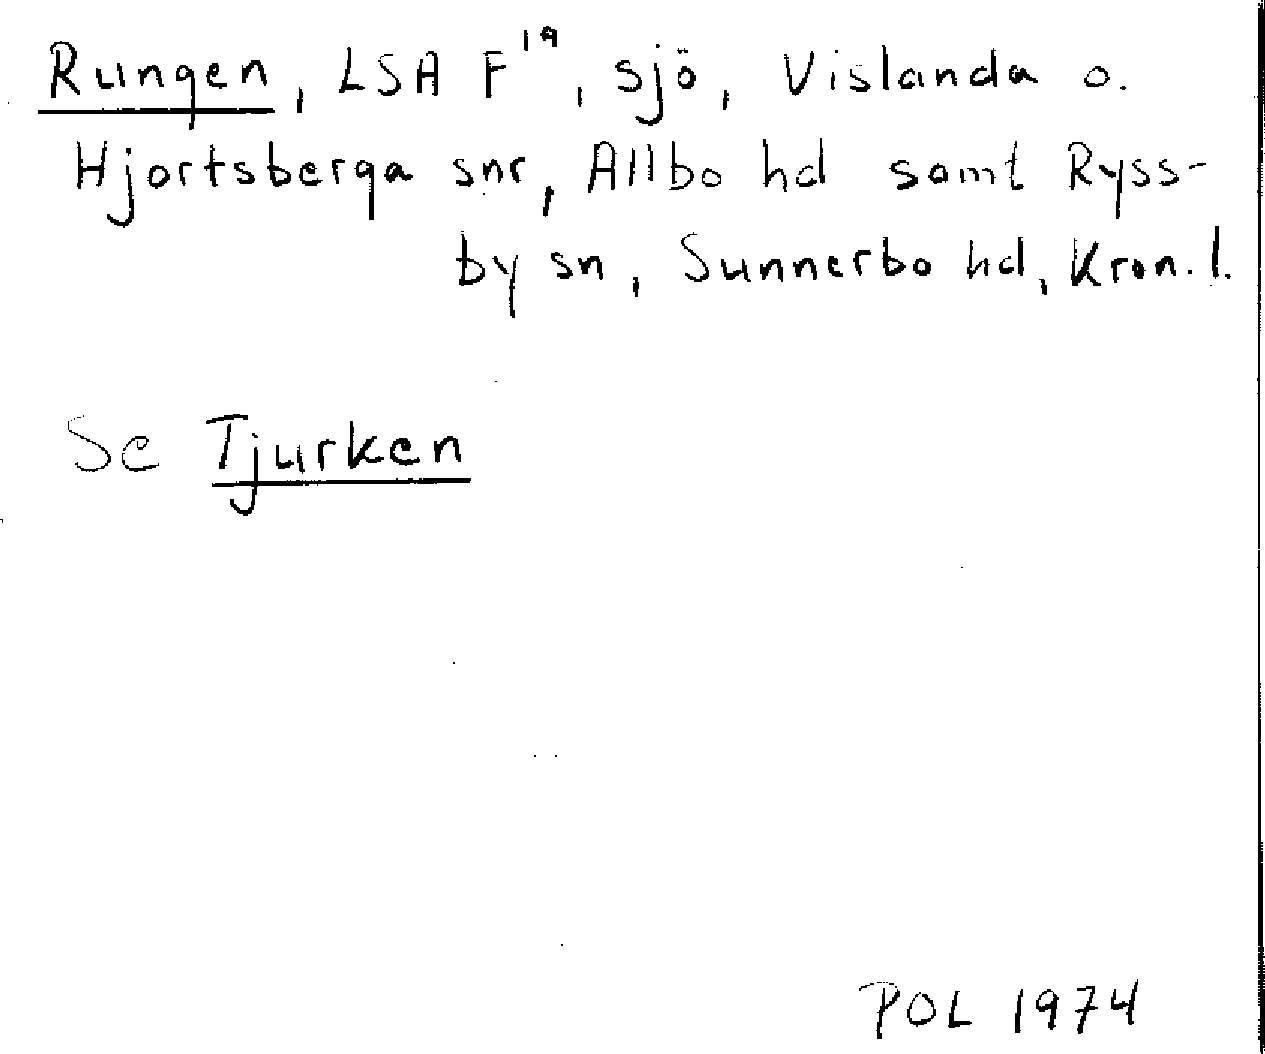 Rungen, LSA F¹⁹, sjö, Vislanda o.
Hjortsberga snr, Allbo hd samt Ryss-
by sn, Sunnerbo hd, Kron. l.
Se Tjurken
POL 1974